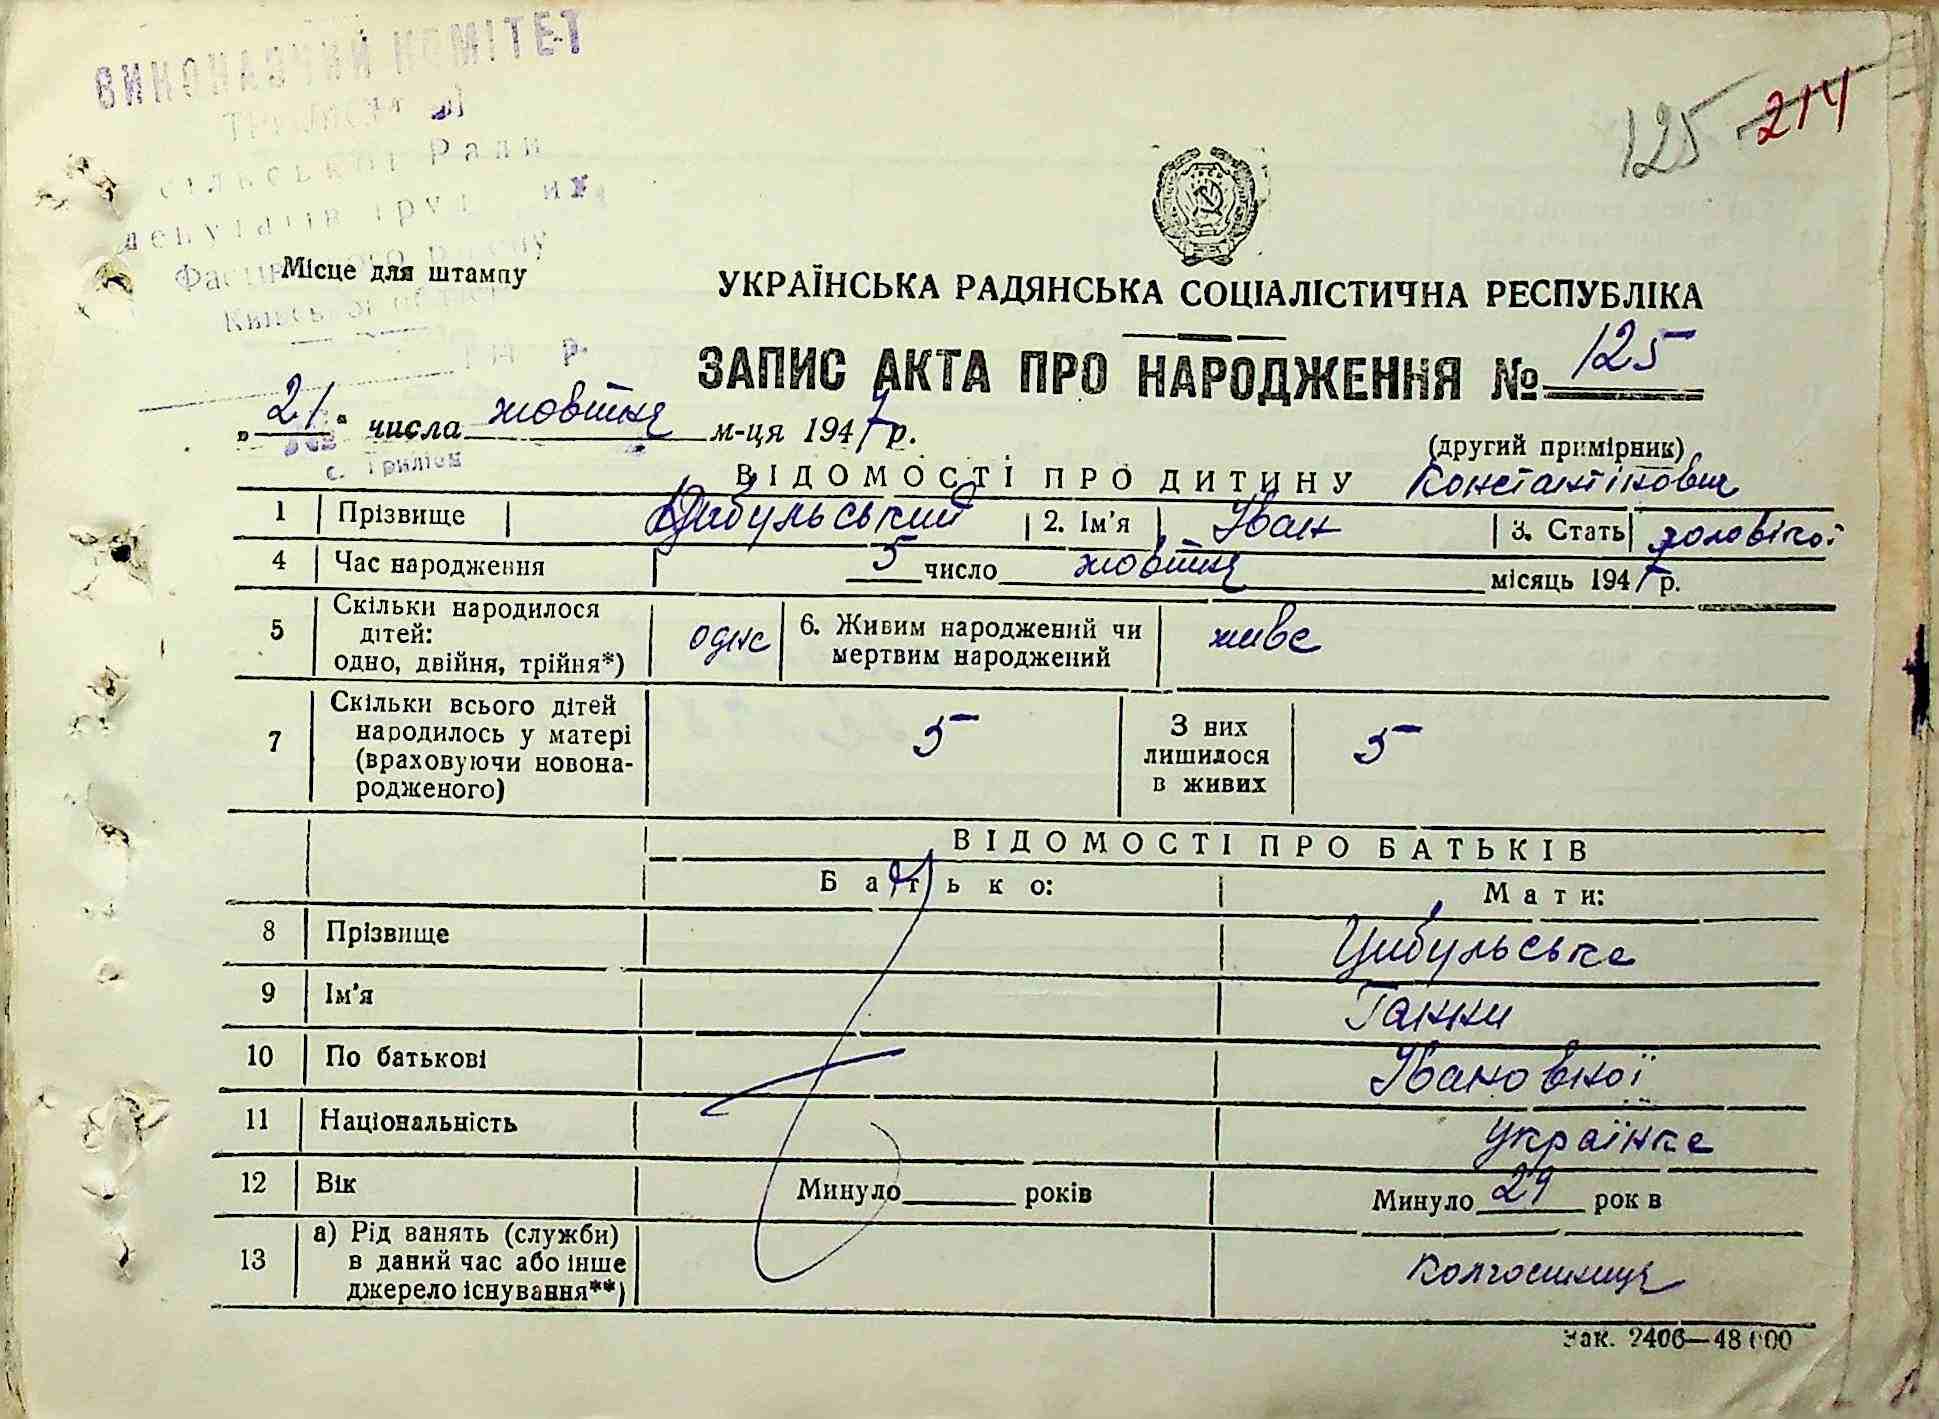 ВИКОНАВЧИЙ КОМІТЕТ
сільської Ради
депутатів
Фастівського району
Київської області
р.
с. Триліси
125 214
Місце для штампу
УКРАЇНСЬКА РАДЯНСЬКА СОЦІАЛІСТИЧНА РЕСПУБЛІКА
ЗАПИС АКТА ПРО НАРОДЖЕННЯ № 125
„21“ числа жовтня м-ця 1947 р.
(другий примірник)
ВІДОМОСТІ ПРО ДИТИНУ Константінович
1 Прізвище Цибульський 2. Ім'я Іван 3. Стать чоловічої
4 Час народження 5 число жовтня місяць 1947 р.
5 Скільки народилося дітей: одно, двійня, трійня*) одне 6. Живим народжений чи мертвим народжений живе
7 Скільки всього дітей народилось у матері (враховуючи новонародженого) 5 З них лишилося в живих 5
ВІДОМОСТІ ПРО БАТЬКІВ
Батько: Мати:
8 Прізвище Цибульська
9 Ім'я Ганни
10 По батькові Івановної
11 Національність українка
12 Вік Минуло років Минуло 29 років
13 а) Рід занять (служби) в даний час або інше джерело існування**) колгоспниця
Зак. 2406—48000